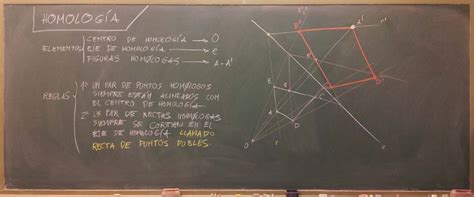 HOMOLOGÍA
CENTRO DE HOMOLOGÍA → O
ELEMENTOS EJE DE HOMOLOGÍA → e
FIGURAS HOMÓLOGAS → A - A'
REGLAS 1º UN PAR DE PUNTOS HOMÓLOGOS
SIEMPRE ESTÁN ALINEADOS CON
EL CENTRO DE HOMOLOGÍA.
2º UN PAR DE RECTAS HOMÓLOGAS
SIEMPRE SE CORTAN EN EL
EJE DE HOMOLOGÍA LLAMADO
RECTA DE PUNTOS DOBLES.
A'
r'
B
A
D
O
r
e